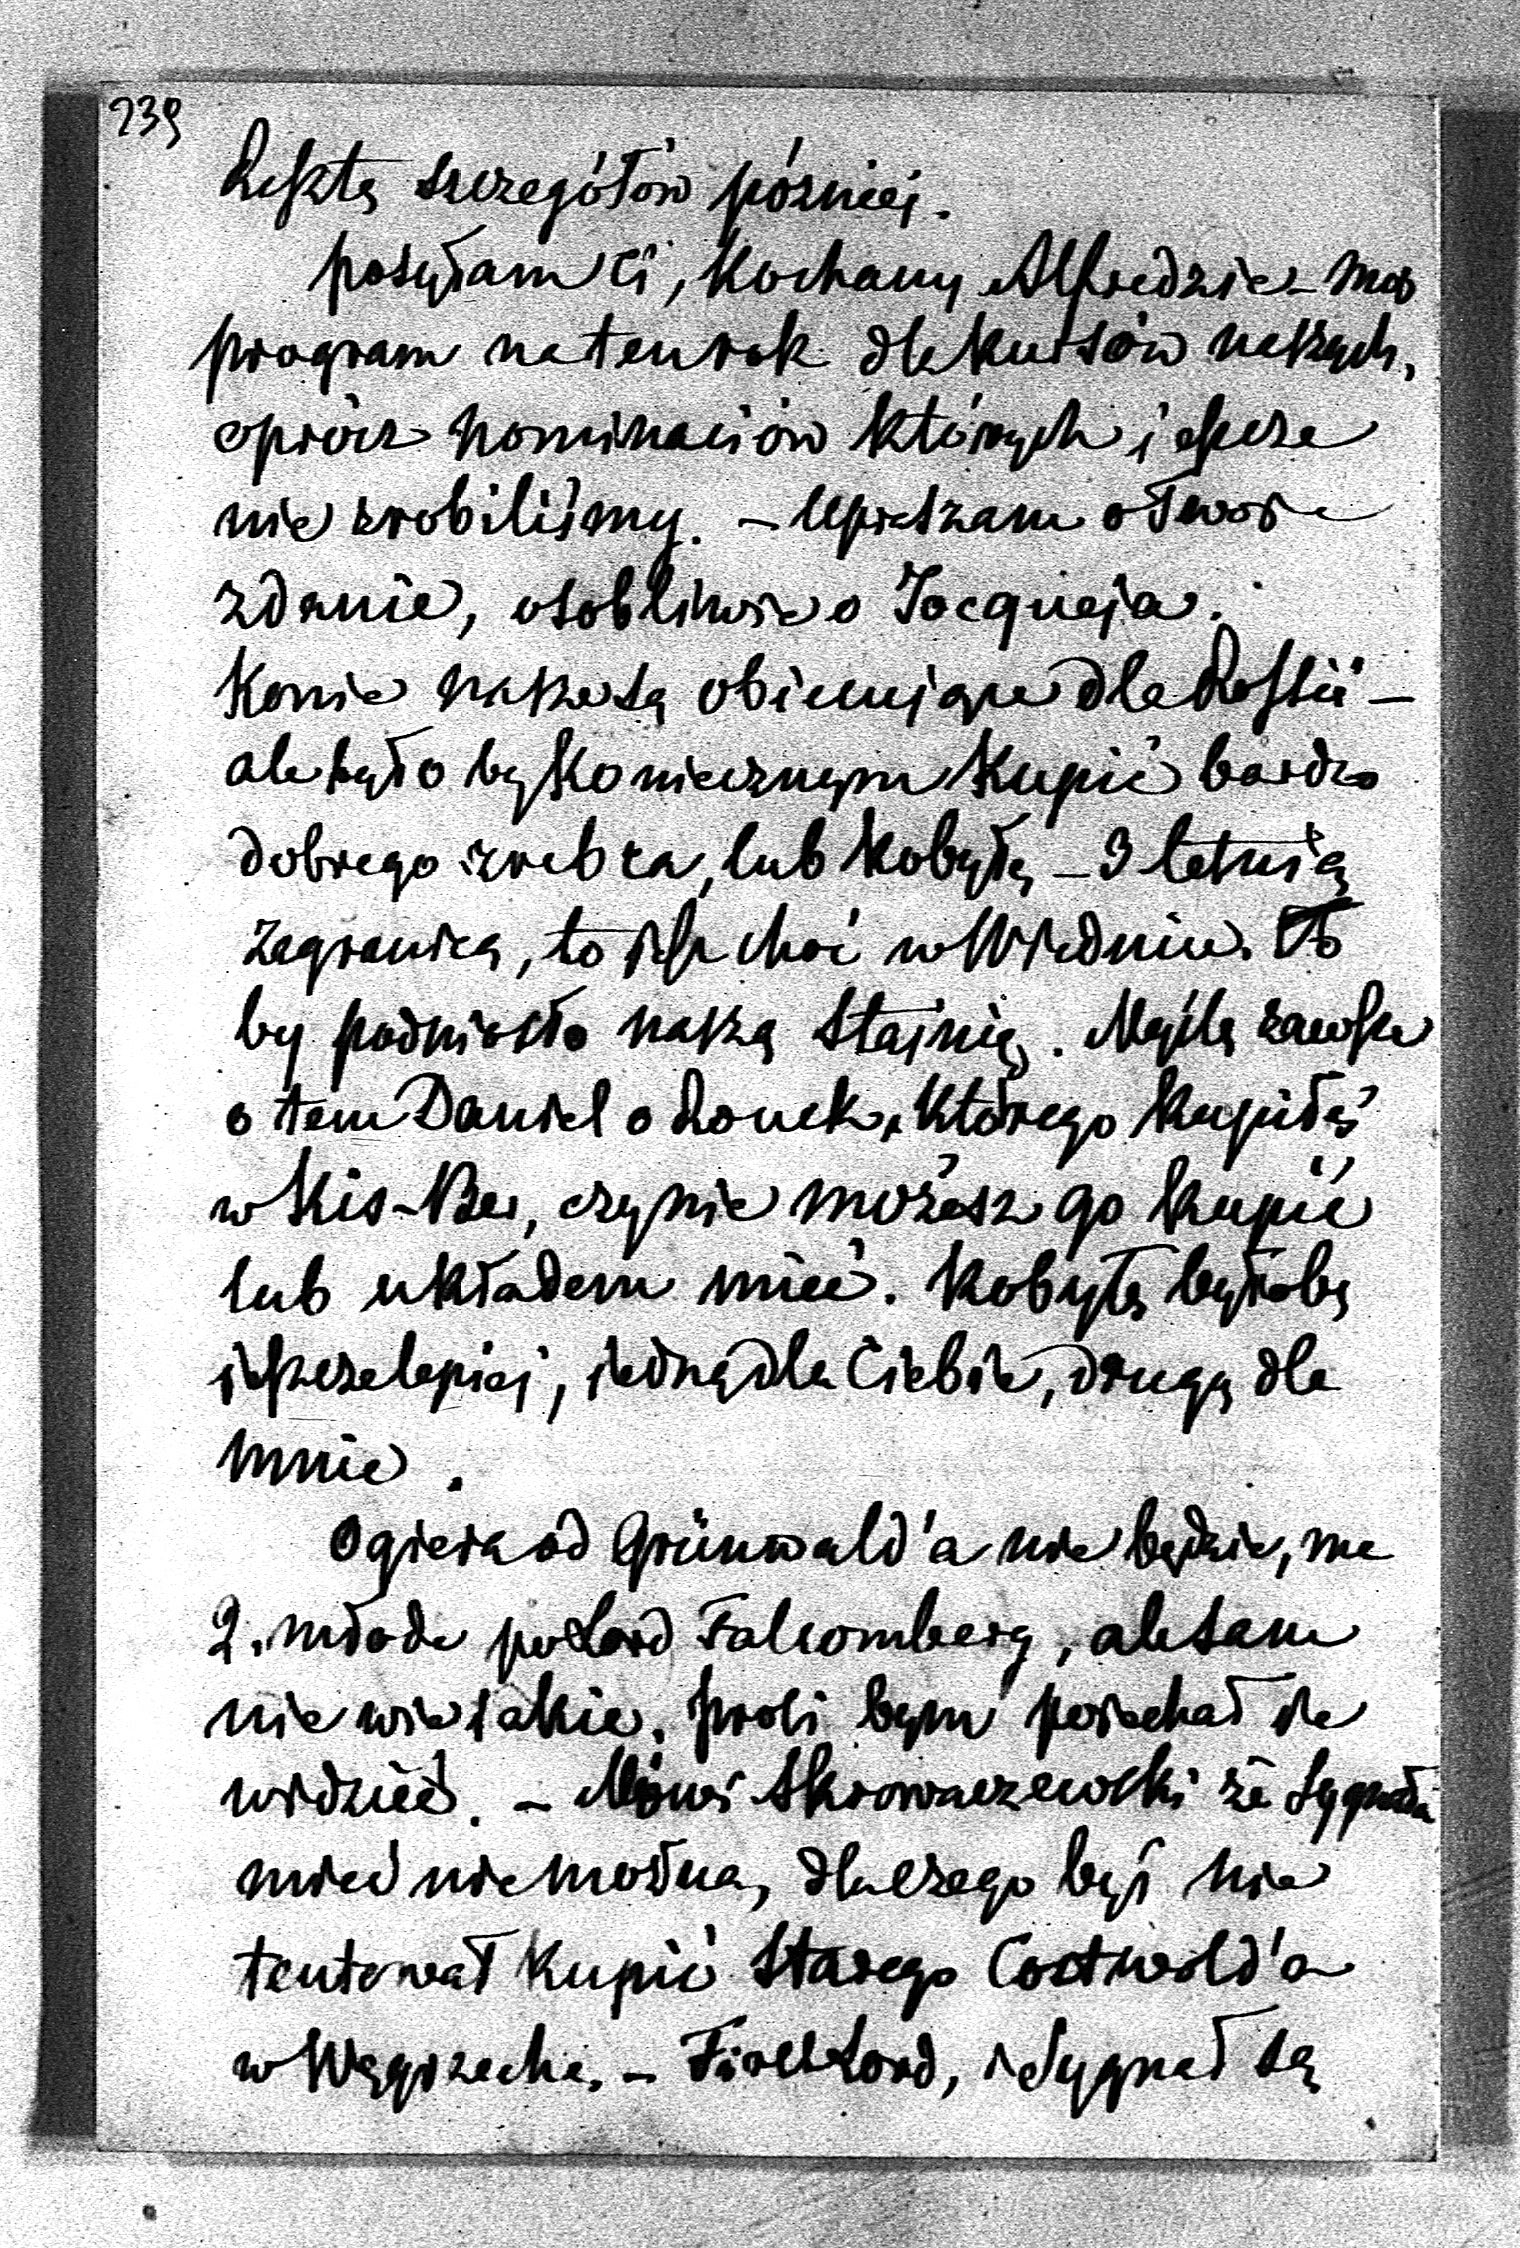 239
Resztę szczegółów pózniej.
posyłam Ci, kochany Alfredzie – mos
program na ten rok dla kursów naszych,
oprócz nominaciów których ieszcze
nie zrobiliśmy. – Upraszam o Twoie
zdanie, osobliwie o Jocqueja.
Konie nasze są obiecujące dla Rossii –
ale było by koniecznym kupić bardzo
dobrego zrebca, lub kobyłę – 3 letnią
zagranicą, to iest choć w Wiedniu. To
by podniosło naszą stajnię. Myślę zawsze
o tem Daniel o Rouck, którego kupiłeś
w Kis-Ber, czy nie możesz go kupić
lub układem mieć. Kobyłę byłoby
ieszcze lepiej, iedną dla Ciebie, drugą dla
mnie.
Ogiera od Grünwald'a nie będzie, ma
2. młode po Lord Falcomberg, ale sam
nie wie iakie. prosi bym poiechał ie
widzieć. – Mówi Skrowaczewski że Sygnała
mieć nie można, dlaczego byś nie
tentował kupić starego Costwold'a
w Węgrzech. – First Lord, i Sygnał są